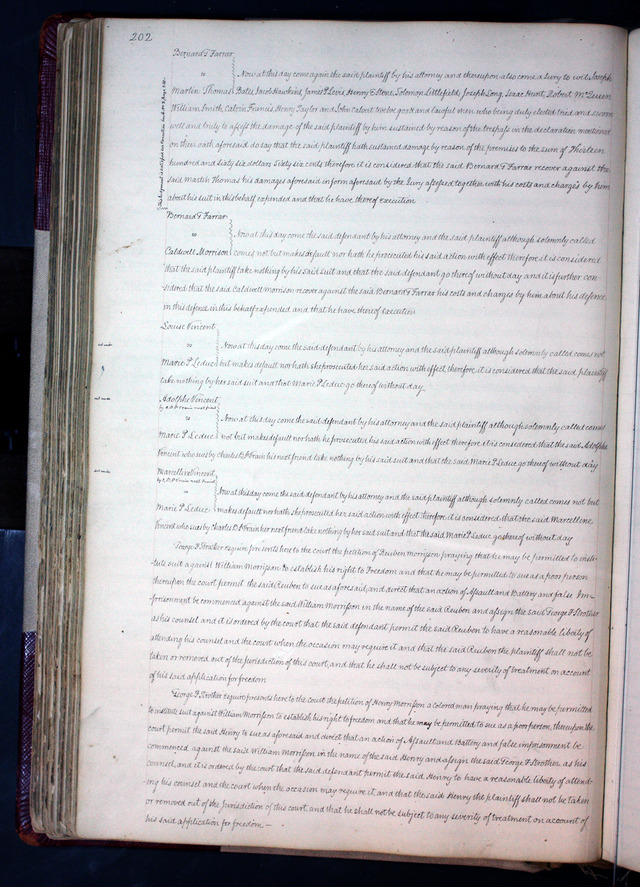 202
Bernard T Farrar
vs
Now at this day come again the said plaintiff by his attorney and thereupon also come a Jury to wit Joseph
Martin Thomas Bates, Jacob Hawkins, James P. Levis, Henry C Stone, Solomon Littlefield, Joseph Long, Isaac Hunt, Robert McQueen
William Smith, Calvin Francis, Henry Taylor and John Calvert twelve good and lawful men who being duly elected tried and sworn
well and truly to assess the damage of the said plaintiff by him sustained by reason of the trespass in the declaration mentioned
on their oath aforesaid do say that the said plaintiff hath sustained damage by reason of the premises to the sum of Thirteen
hundred and sixty six dollars sixty six cents therefore it is considered that the said Bernard T Farrar recover against the
said Martin Thomas his damages aforesaid in form aforesaid by the Jury assessed together with his costs and charges by him
about his suit in this behalf expended and that he have thereof execution
Bernard T Farrar
vs
Now at this day come the said defendant by his attorney and the said plaintiff although solemnly called
Caldwell Morrison comes not but makes default nor hath he prosecuted his said action with effect therefore it is considered
that the said plaintiff take nothing by his said suit and that the said defendant go thereof without day and it is further con-
sidered that the said Caldwell Morrison recover against the said Bernard T Farrar his costs and charges by him about his defence
in this defence in this behalf expended and that he have thereof execution
Louise Vincent
vs
Now at this day come the said defendant by his attorney and the said plaintiff although solemnly called comes not
Marie P. Leduc but makes default nor hath she prosecuted her said action with effect therefore it is considered that the said plaintiff
take nothing by her said suit and that Marie P. Leduc go thereof without day
Adolphe Vincent
vs
Now at this day come the said defendant by his attorney and the said plaintiff although solemnly called comes
Marie P. Leduc not but makes default nor hath he prosecuted his said action with effect therefore it is considered that the said Adolphe
Vincent who sues by Charles D. St Vrain his next friend take nothing by his said suit and that the said Marie P. Leduc go thereof without day
Marcelline Vincent
vs
Now at this day come the said defendant by his attorney and the said plaintiff although solemnly called comes not but
Marie P. Leduc makes default nor hath she prosecuted her said action with effect therefore it is considered that the said Marcellene
Vincent who sues by Charles D. St Vrain her next friend take nothing by her said suit and that the said Marie P. Leduc go thereof without day
George F. Strother esquire presents here to the court the petition of Reuben Morrison praying that he may be permitted to insti-
tute suit against William Morrison to establish his right to Freedom and that he may be permitted to sue as a poor person
thereupon the court permit the said Reuben to sue as aforesaid and direct that an action of Assault and Battery and false Im-
prisonment be commenced against the said William Morrison in the name of the said Reuben and assign the said George F Strother
as his counsel and it is ordered by the court that the said defendant permit the said Reuben to have a reasonable liberty of
attending his counsel and the court when the occasion may require it and that the said Reuben the plaintiff shall not be
taken or removed out of the jurisdiction of this court, and that he shall not be subject to any severity of treatment on account
of his said application for freedom
George F. Strother esquire presents here to the court the petition of Henry Morrison a colored man praying that he may be permitted
to institute suit against William Morrison to establish his right to freedom and that he may be permitted to sue as a poor person, thereupon the
court permit the said Henry to sue as aforesaid and direct that an action of Assault and Battery and false imprisonment be
commenced against the said William Morrison in the name of the said Henry and assign the said George F. Strother as his
counsel, and it is ordered by the court that the said defendant permit the said Henry to have a reasonable liberty of attend-
ing his counsel and the court when the occasion may require it, and that the said Henry the plaintiff shall not be taken
or removed out of the jurisdiction of this court, and that he shall not be subject to any severity of treatment on account of
his said application for freedom —